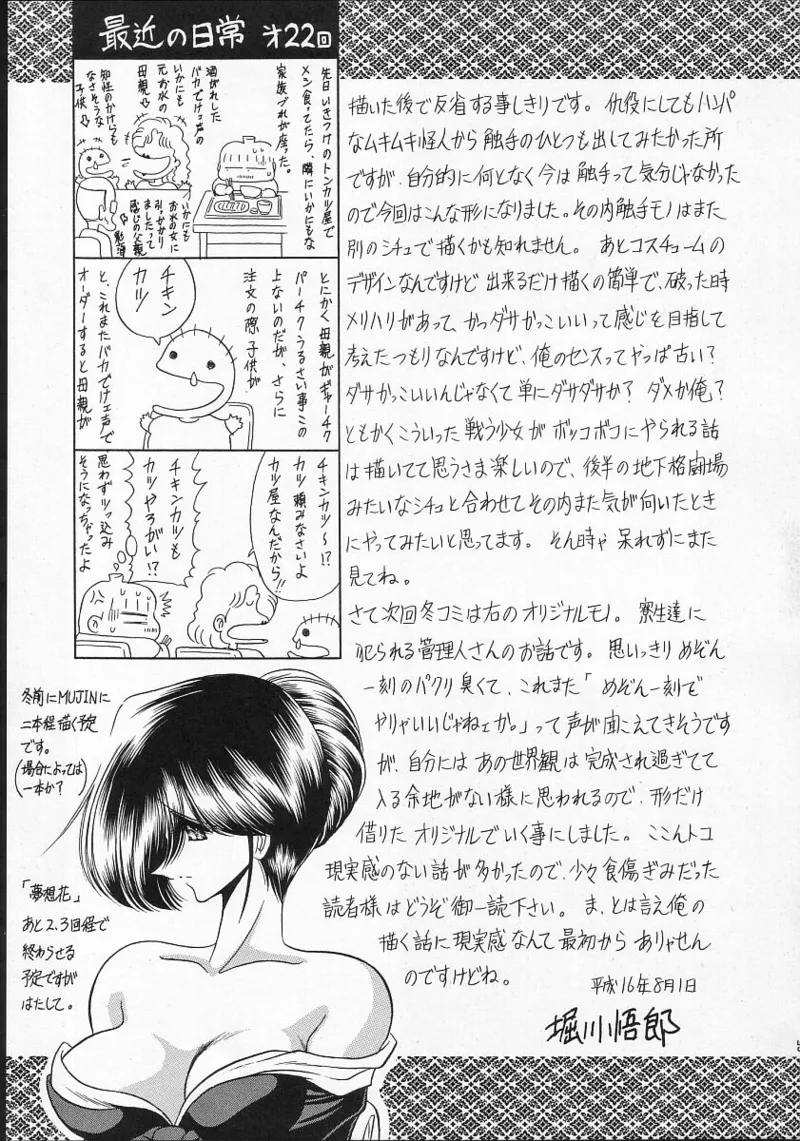 最近の日常 才22回
先日いきつけのトンカツ屋で
メシ食ってたら、隣にいかにもな
家族づれが座った。
酒がれした
バカでけェ声の
いかにも
元お水の
母親⇨
知性のかけらも
なさそうな
子供⇨
いかにも
お水の女に
引っかかり
ましたって
感じの父親
とにかく母親がギャーチク
パーチクうるさい事この
上ないのだが、さらに
注文の際、子供が
チキン
カツ
と、これまたバカでけェ声で
オーダーすると母親が
チキンカツ〜!?
カツ頼みなさいよ
カツ屋なんだから!!
チキンカツも
カツやろがい!?
思わずツッ込み
そうになっちゃったよ
描いた後で反省する事しきりです。仇役にしてもハンパ
なムキムキ怪人から触手のひとつも出してみたかった所
ですが、自分的に何となく今は触手って気分じゃなかった
ので今回はこんな形になりました。その内触手モノはまた
別のシチュで描くかも知れません。あとコスチュームの
デザインなんですけど出来るだけ描くの簡単で、破った時
メリハリがあって、かつダサかっこいいって感じを目指して
考えたつもりなんですけど、俺のセンスってやっぱ古い?
ダサかっこいいんじゃなくて単にダサダサか? ダメか俺?
ともかくこういった戦う少女がボッコボコにやられる話
は描いてて思うさま楽しいので、後半の地下格闘場
みたいなシチュと合わせてその内また気が向いたとき
にやってみたいと思ってます。そん時ゃ呆れずにまた
見てね。
さて次回冬コミは右のオリジナルモノ。寮生達に
犯られる管理人さんのお話です。思いっきりめぞん
一刻のパクリ臭くて、これまた「めぞん一刻で
やりゃいいじゃねェか。」って声が聞こえてきそうです
が、自分にはあの世界観は完成され過ぎてて
入る余地がない様に思われるので、形だけ
借りたオリジナルでいく事にしました。ここんトコ
現実感のない話が多かったので、少々食傷ぎみだった
読者様はどうぞ御一読下さい。ま、とは言え俺の
描く話に現実感なんて最初からありゃせん
のですけどね。
平成16年8月1日
堀川悟郎
冬前にMUJINに
二本程描く予定
です。
(場合によっては
一本か?)
「夢想花」
あと2,3回程で
終わらせる
予定ですが
はたして。